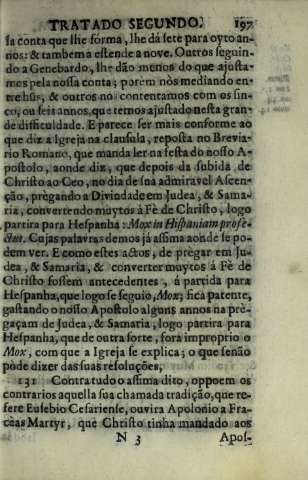 TRATADO SEGUNDO. 197
sa conta que lhe forma, lhe dá sete para oyto an-
nos: & tambem a estende a nove. Outros seguin-
do a Genebardo, lhe dão menos do que ajusta-
mos pela nossa conta; porem nòs mediando en-
tre hũs, & outros nos contentamos com os sin-
co, ou seis annos, que temos ajustado nesta gran-
de difficuldade. E parece ser mais conforme ao
que diz a Igreja na clausula, reposta no Brevia-
rio Romano, que manda ler na festa do nosso A-
postolo, aonde diz, que depois da subida de
Christo ao Ceo, no dia de sua admiravel Ascen-
ção, prègando a Divindade em Judea, & Sama-
ria, convertendo muytos à Fè de Christo, logo
partira para Hespanha: Mox in Hispaniam profe-
ctus. Cujas palavras demos já assima aonde se po-
dem ver. E como estes actos, de prègar em Ju-
dea, & Samaria, & converter muytos á Fè de
Christo fossem antecedentes, á partida para
Hespanha, que logo se seguio, Mox; fica patente,
gastando o nosso Apostolo alguns annos na prè-
gaçam de Judea, & Samaria, logo partira para
Hespanha, que de outra sorte, fora improprio o
Mox, com que a Igreja se explica; o que senão
pòde dizer das suas resoluções,
131 Contra tudo o assima dito, oppoem os
contrarios aquella sua chamada tradição, que re-
fere Eusebio Cesariense, ouvira Apolonio a Fra-
ceas Martyr, que Christo tinha mandado aos
N 3 Apos-